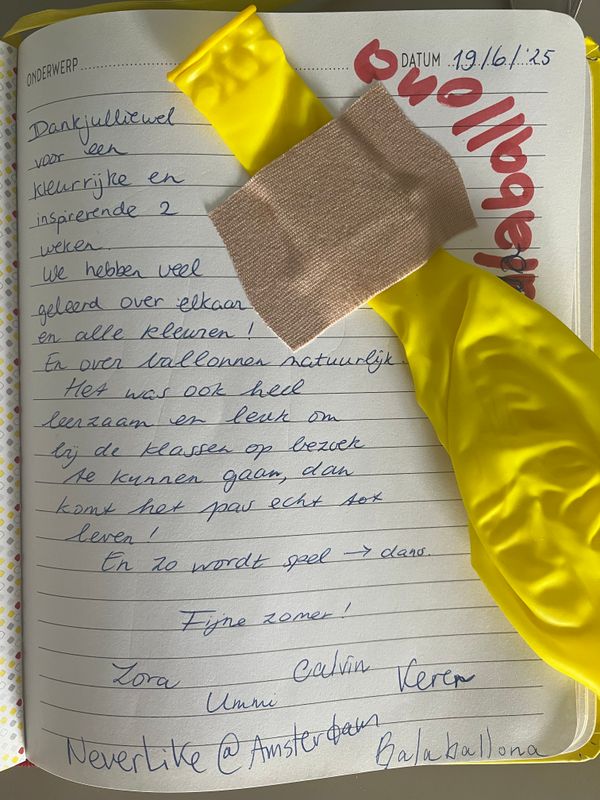 ONDERWERP
DATUM 19/6/'25
Dankjulliewel
voor een
kleurrijke en
inspirerende 2
weken.
We hebben veel
geleerd over elkaar
en alle kleuren!
En over ballonnen natuurlijk.
Het was ook heel
leerzaam en leuk om
bij de klassen op bezoek
te kunnen gaan, dan
komt het pas echt tot
leven!
En zo wordt spel → dans.
Fijne zomer!
Zora
Calvin
Keren
Ummi
NeverLike @ Amsterdam
Balaballona